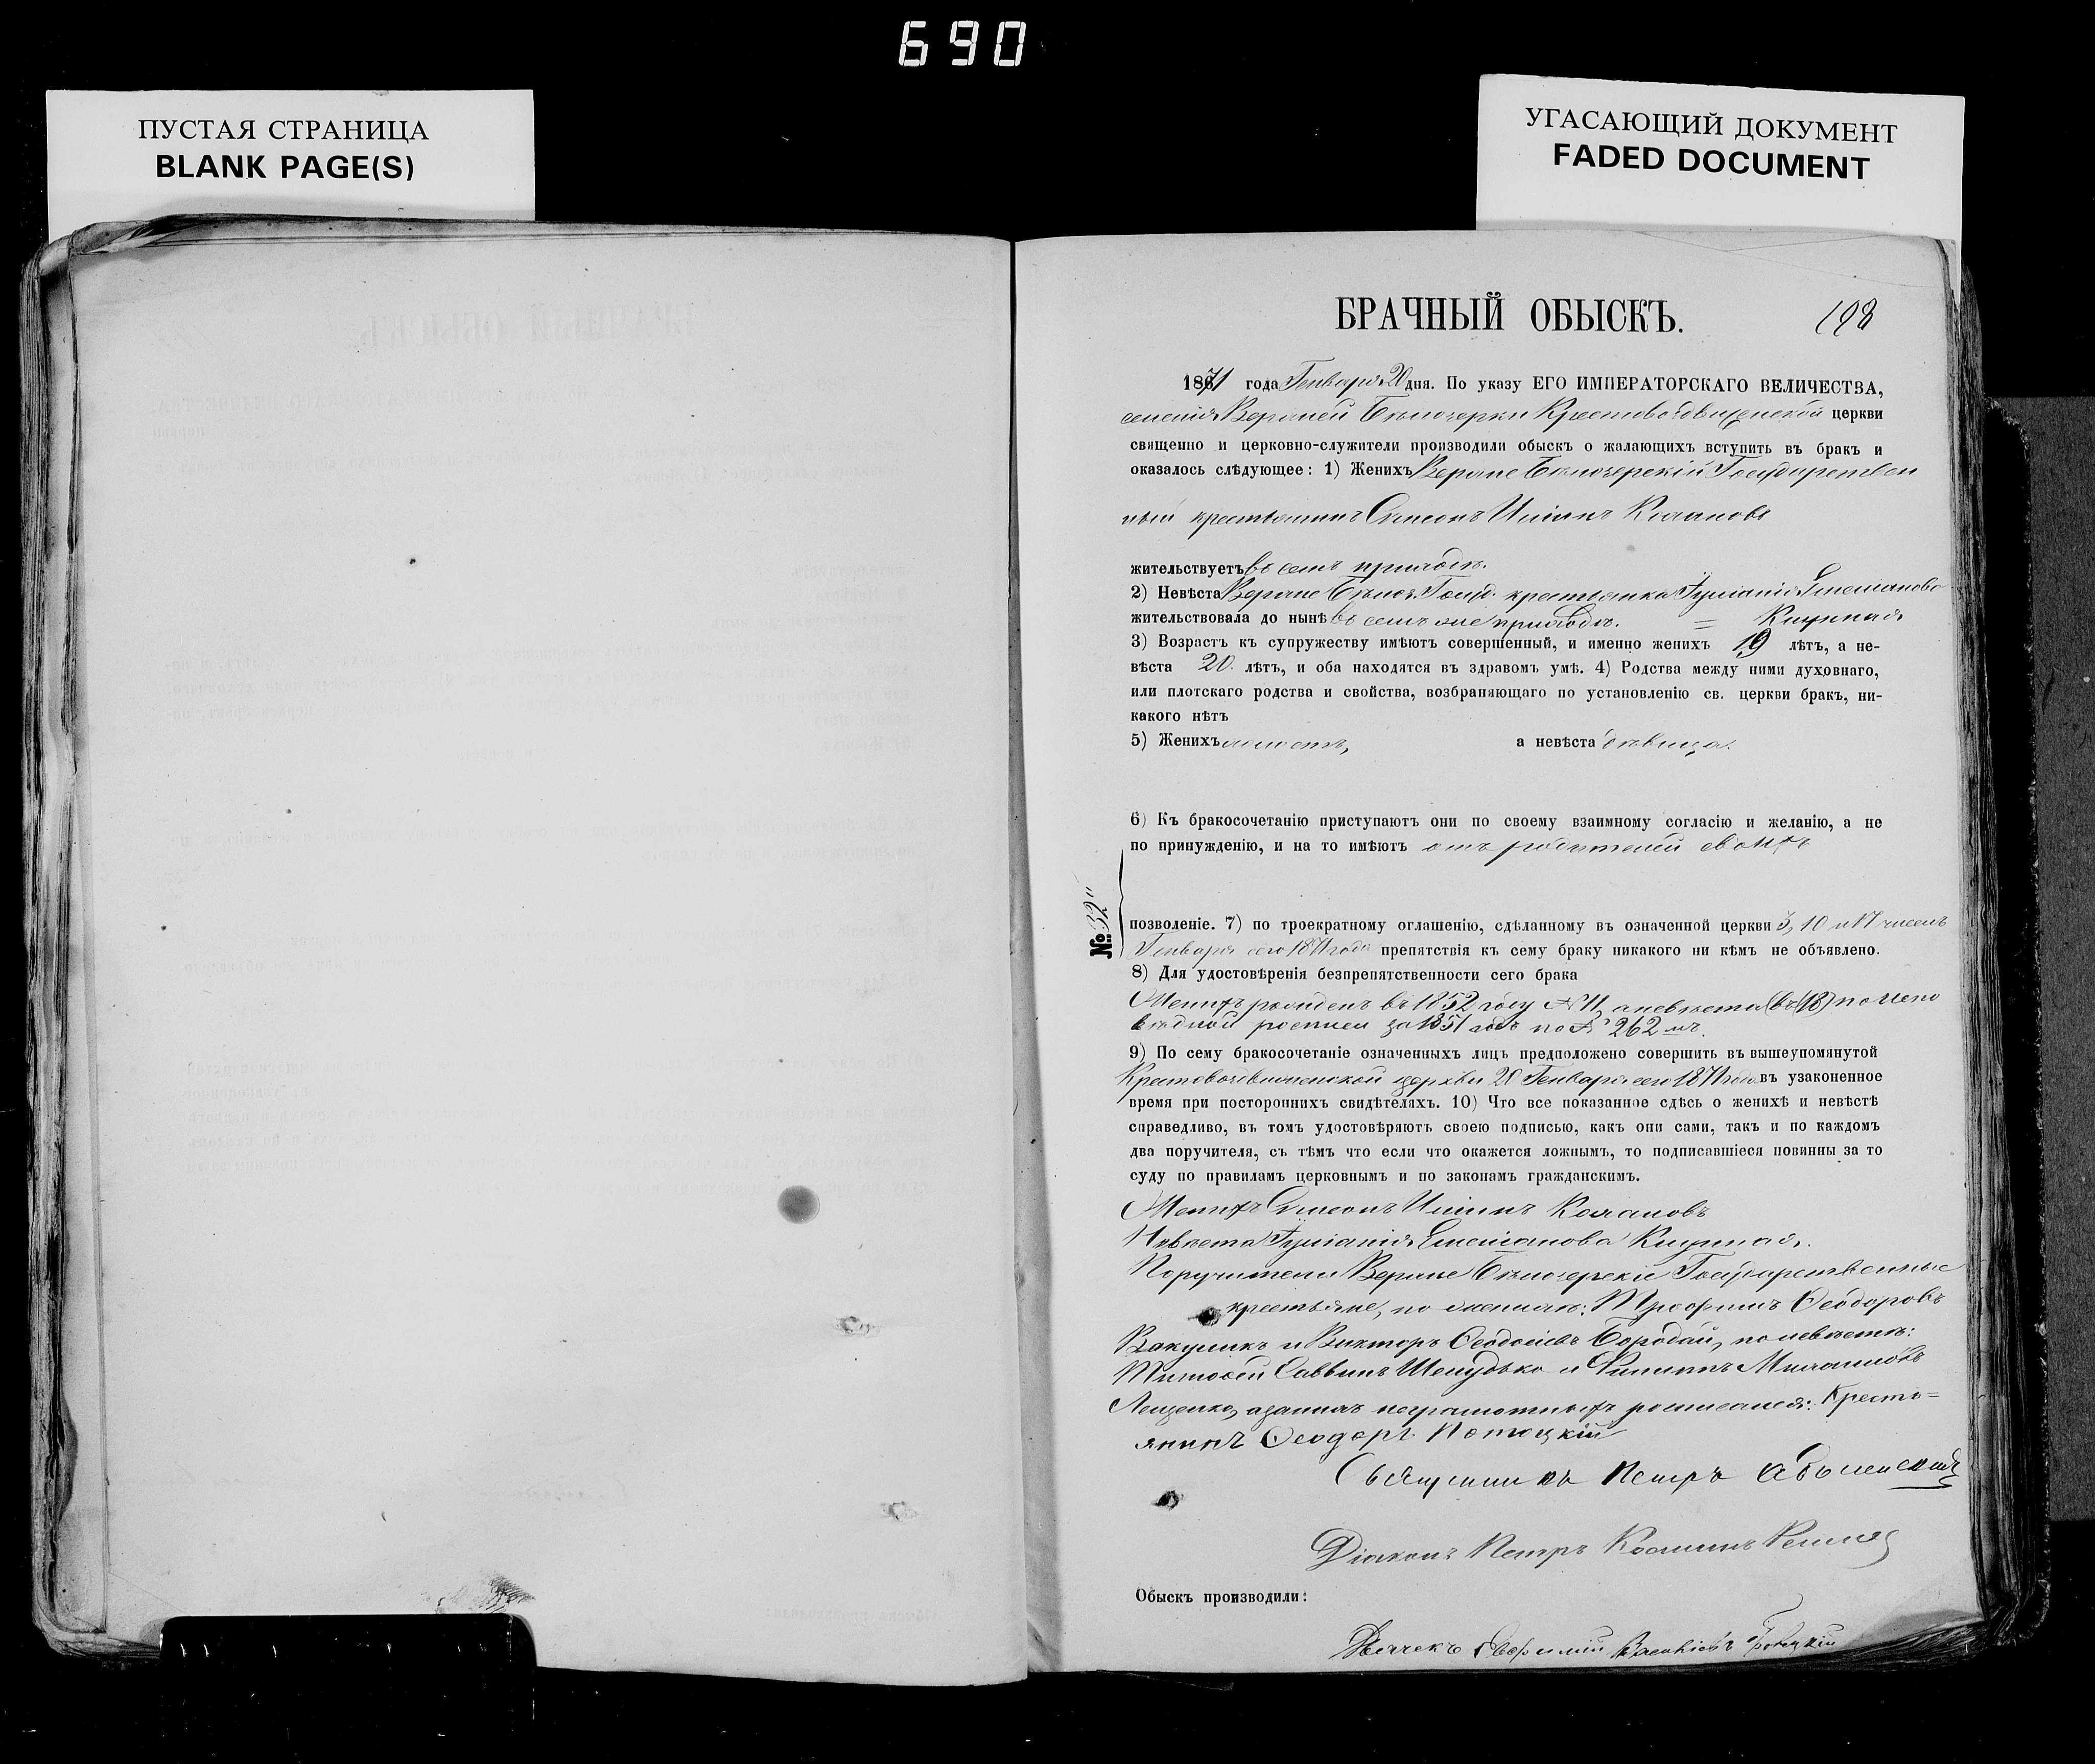 690
ПУСТАЯ СТРАНИЦА
BLANK PAGE(S)
УГАСАЮЩИЙ ДОКУМЕНТ
FADED DOCUMENT
БРАЧНЫЙ ОБЫСКЪ.
198
1871 года Генваря 20 дня. По указу ЕГО ИМПЕРАТОРСКАГО ВЕЛИЧЕСТВА,
селенія Верхней Бѣлозерки Крестовоздвиженской церкви
священно и церковно-служители производили обыскъ о жалающихъ вступить въ бракъ и
оказалось слѣдующее: 1) Женихъ Верхне Бѣлозерскій Государствен
ный крестьянинъ Симеонъ
жительствуетъ въ семъ приходѣ.
2) Невѣста Верхне Бѣлоз. Госуд. крестьянка Іуліанія Емеліанова
жительствовала до нынѣ въ семъ же приходѣ. =
3) Возрастъ къ супружеству имѣютъ совершенный, и именно женихъ 19 лѣтъ, а не-
вѣста 20 лѣтъ, и оба находятся въ здравомъ умѣ. 4) Родства между ними духовнаго,
или плотскаго родства и свойства, возбраняющаго по установленію св. церкви бракъ, ни-
какого нѣтъ
5) Женихъ холостъ, а невѣста дѣвица.
6) Къ бракосочетанію приступаютъ они по своему взаимному согласію и желанію, а не
по принужденію, и на то имѣютъ отъ родителей своихъ
№ 32
позволеніе. 7) по троекратному оглашенію, сдѣланному въ означенной церкви 3, 10 и 17 чиселъ
Генваря сего 1871 года препятствія къ сему браку никакого ни кѣмъ не объявлено.
8) Для удостовѣренія безпрепятственности сего брака
Женихъ рожденъ въ 1852 году № 11, а невѣста по испо
вѣдной росписи за 1851 годъ по № 262 мъ.
9) По сему бракосочетаніе означенныхъ лицъ предположено совершить въ вышеупомянутой
Крестовоздвиженской церкви 20 Генваря сего 1871 года въ узаконенное
время при постороннихъ свидѣтеляхъ. 10) Что все показанное сдѣсь о женихѣ и невѣстѣ
справедливо, въ томъ удостовѣряютъ своею подписью, какъ они сами, такъ и по каждомъ
два поручителя, съ тѣмъ что если что окажется ложнымъ, то подписавшіеся повинны за то
суду по правиламъ церковнымъ и по законамъ гражданскимъ.
Женихъ Симеонъ
Невѣста Іуліанія Емеліанова
Поручители Верхне Бѣлозерскіе Государственные
крестьяне, по женихѣ: Трофимъ Ѳеодоровъ
Вакуликъ и Викторъ Ѳеодосіевъ Бородай, по невѣстѣ:
Тимоѳей Саввинъ Шелудько и Филиппъ
Лещенко, а за нихъ неграмотныхъ росписался: Кресть=
янинъ Ѳеодоръ Потоцкій
Священникъ Петръ
Діаконъ Петръ
Обыскъ производили:
Дьячекъ